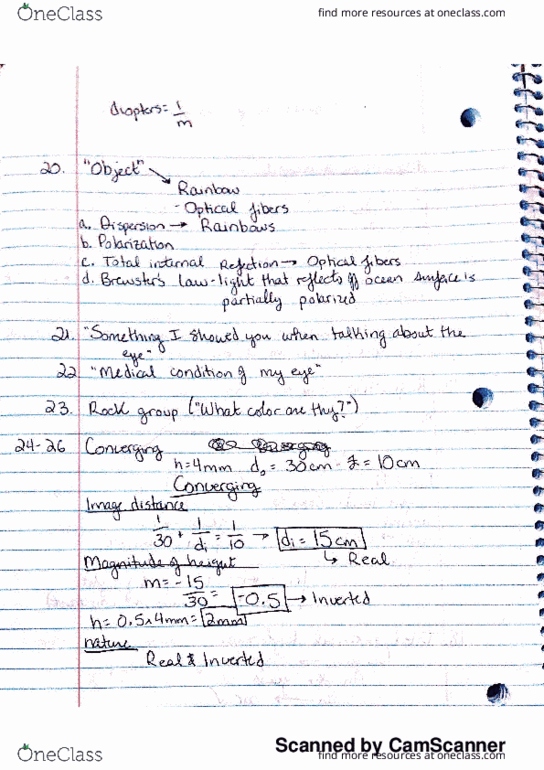 OneClass
find more resources at oneclass.com
diopters = 1/m
20. "Object"
Rainbow
- Optical fibers
a. Dispersion → Rainbows
b. Polarization
c. Total internal Reflection → Optical fibers
d. Brewster's law - light that reflects off ocean surface is
partially polarized
21. "Something I showed you when talking about the
eye"
22 "Medical condition of my eye"
23. Rock group ("What color are they?")
24-26 Converging
h = 4mm do = 30cm f = 10cm
Converging
Image distance
1/30 + 1/di = 1/10 → di = 15cm
↳ Real
Magnitude of height
m = -15/30 = -0.5 → Inverted
h = 0.5 x 4mm = 2mm
nature
Real & Inverted
Scanned by CamScanner
OneClass
find more resources at oneclass.com